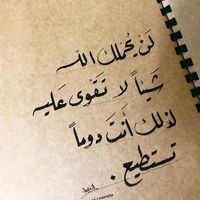 لَن يُحملك الله
شَيئاً لا تَقوى عَليه
لذلك أنتَ دَوماً
تستطيع .